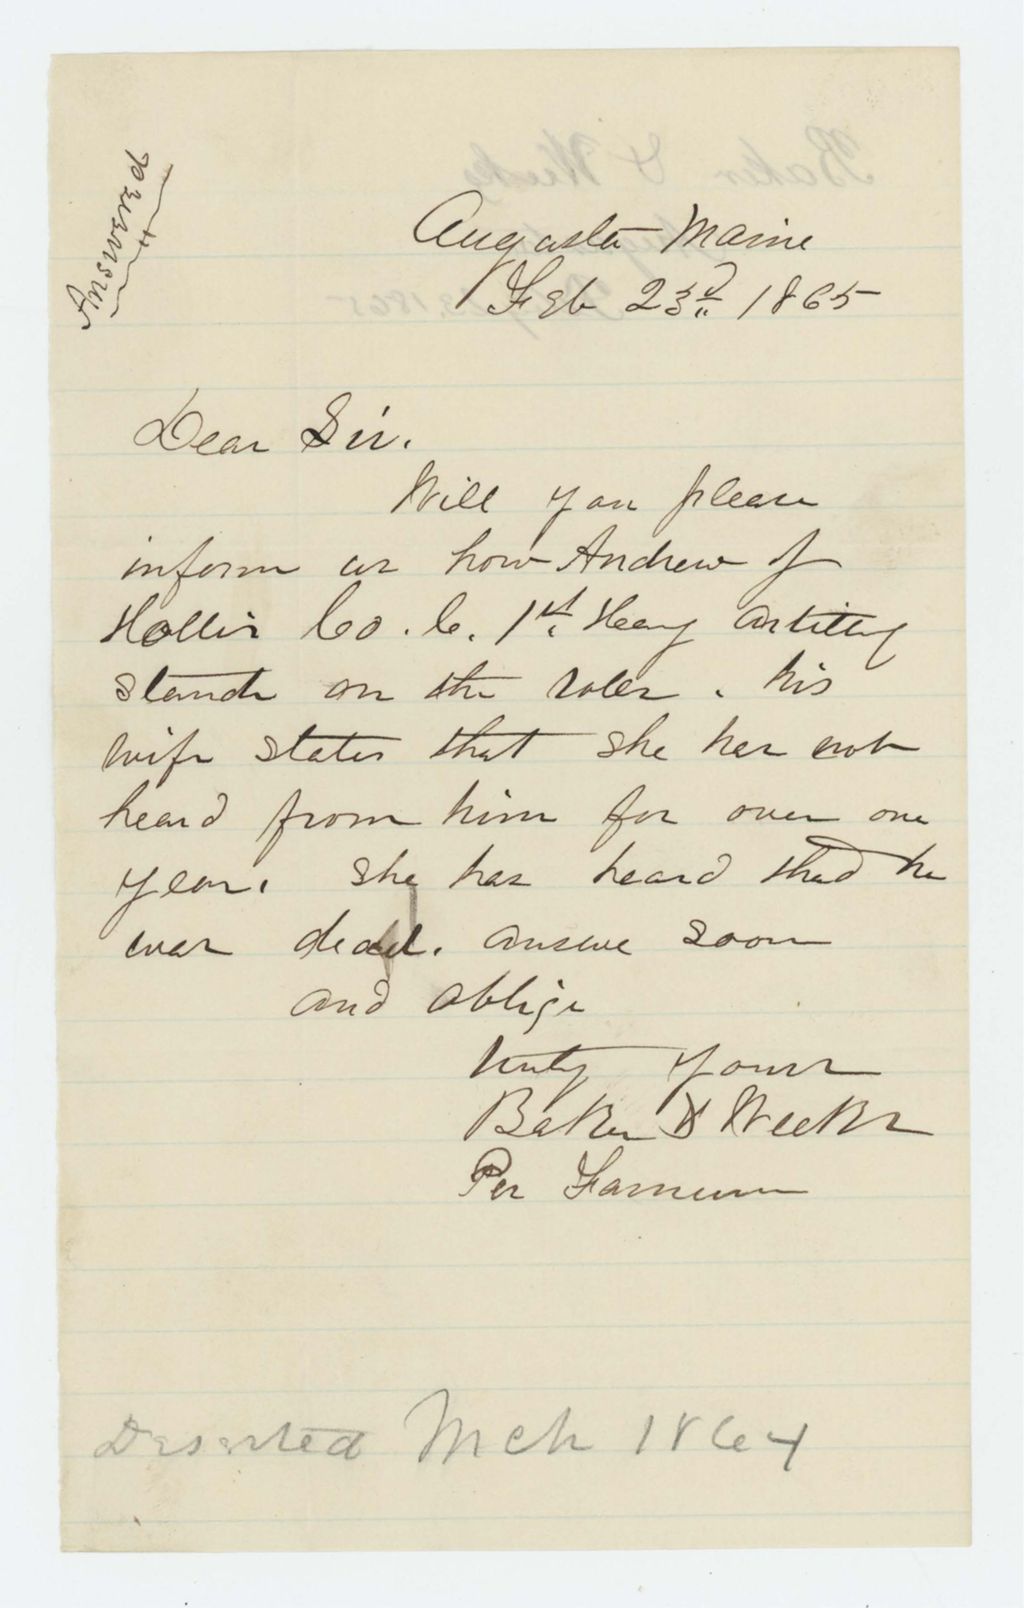 Answered
Augusta Maine
Feb 23d 1865
Dear Sir.
Will you please
inform us how Andrew J
Hollis Co. C. 1st Heavy Artillery
stands on the roles. his
wife states that she has not
heard from him for over one
year. She has heard that he
was dead. answe soon
and oblige
truly yours
Baker & Weeks
Per Farnum
Deserted Mch 1864